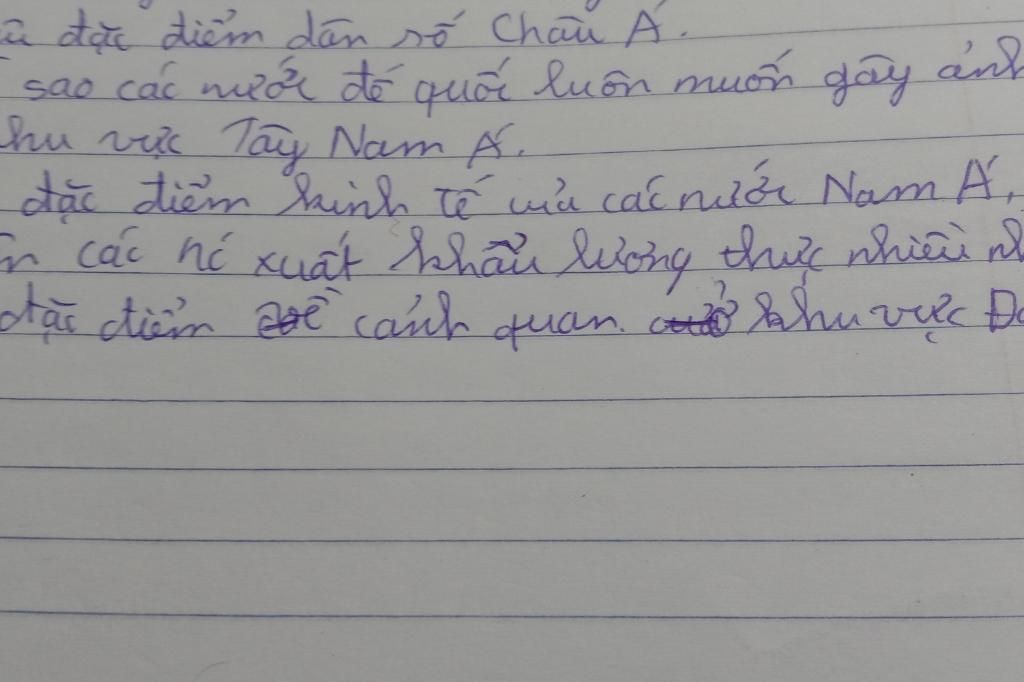 đặc điểm dân số Châu Á.
sao các nước đế quốc luôn muốn gây ảnh
khu vực Tây Nam Á.
đặc điểm kinh tế của các nước Nam Á,
các nc xuất khẩu lương thực nhiều
đặc điểm cảnh quan ở khu vực